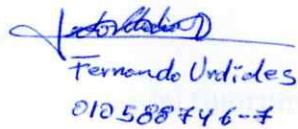 Fernando Urdiales
010588746-7